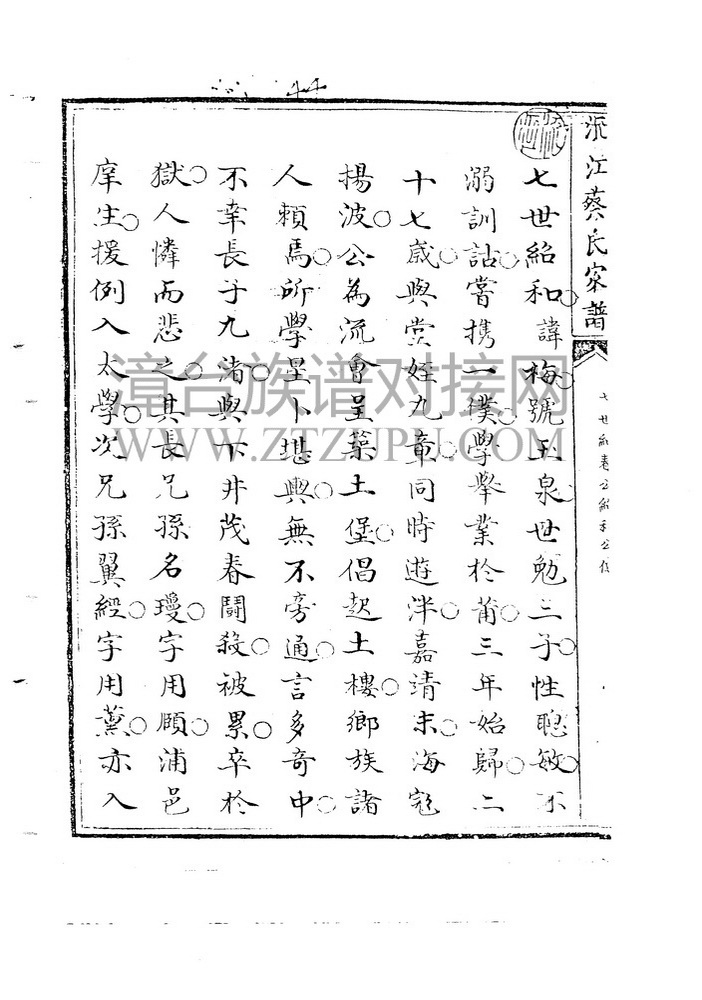 江蔡氏家譜
七世紹和諱梅號玉泉世勉三子性聰敏不
溺訓詁嘗携一僕學舉業於莆三年始歸二
十七歲與堂姪九章同時遊泮嘉靖末海寇
揚波公為流會呈築土堡倡起土樓鄉族諸
人賴焉所學星卜堪輿無不旁通言多奇中
不幸長子九渚與下井茂春鬪殺被累卒於
獄人憐而悲之其長兄孫名璦字用頤浦邑
庠生援例入太學次兄孫翼經字用薰亦入
漳台族谱对接网
WWW.ZTZUPU.COM